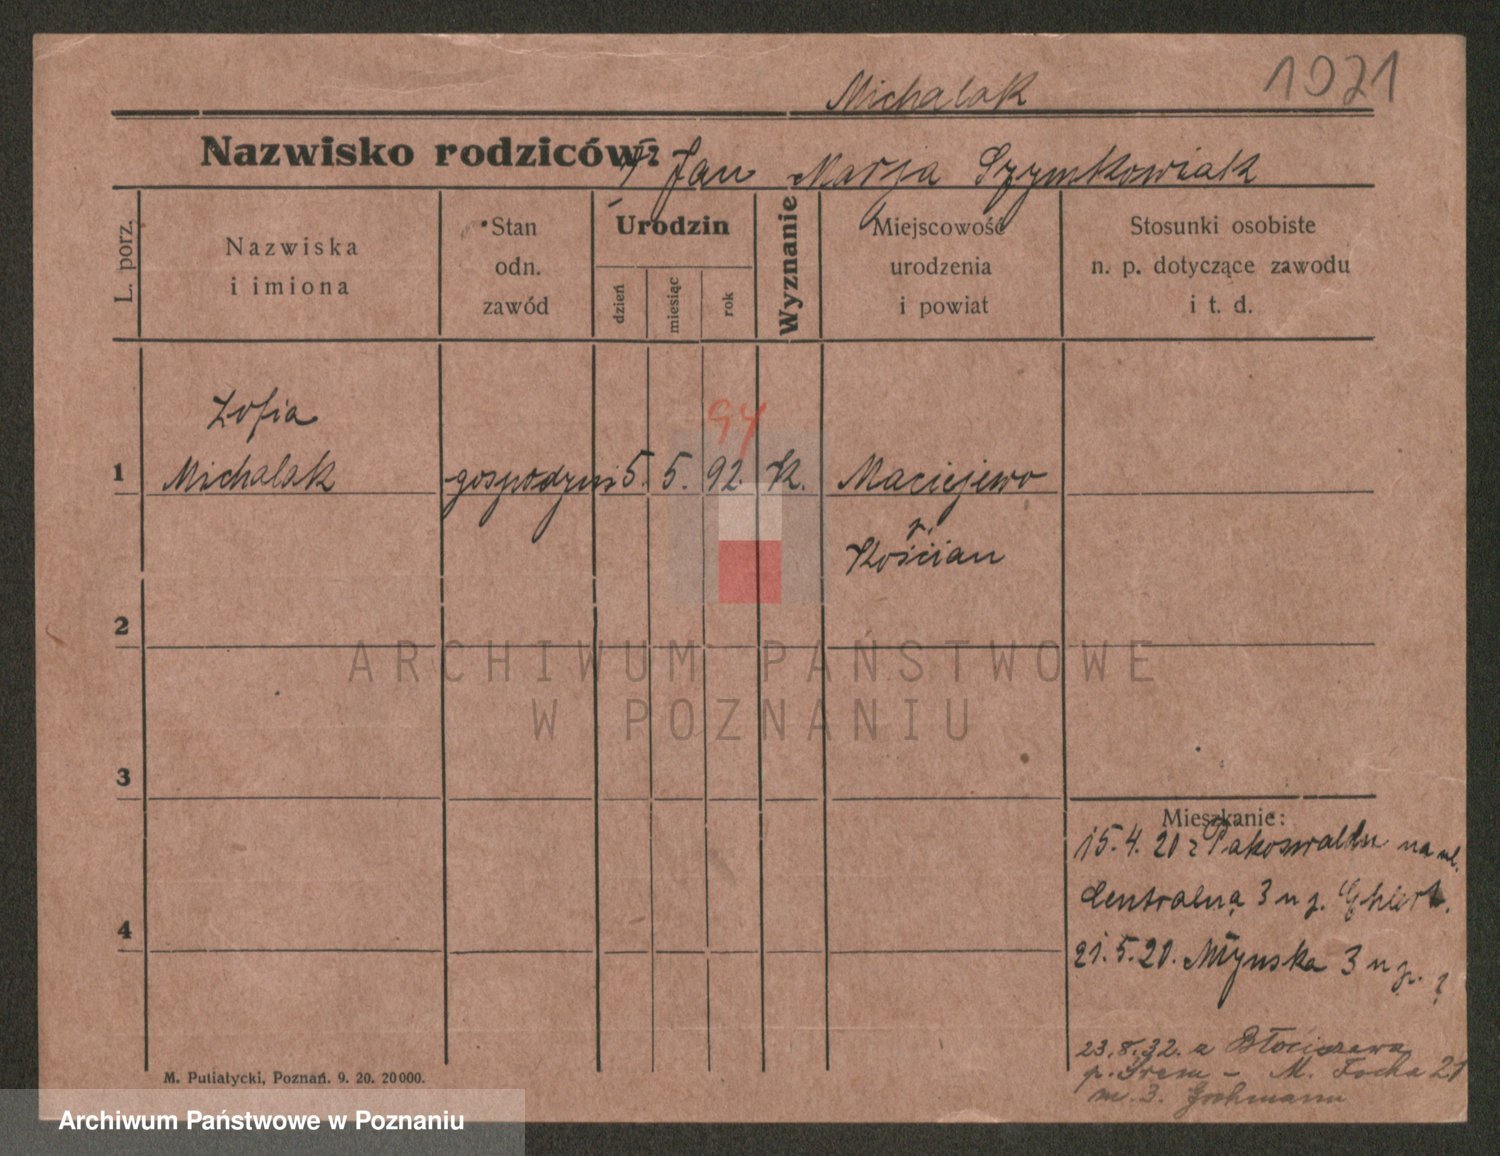 Michalak
1921
Nazwisko rodziców:
Jan Marja Szymkowiak
L. porz.
Nazwiska
i imiona
Stan
odn.
zawód
Urodzin
dzień
miesiąc
rok
Wyznanie
Miejscowość
urodzenia
i powiat
Stosunki osobiste
n. p. dotyczące zawodu
i t. d.
94
Zofia
1 Michalak gospodyni 5. 5. 92. K. Maciejewo
p.
Kościan
2
3
4
Mieszkanie:
15.4.20 z Pakoswaldu na ul.
Centralną 3 u g. Ghlert.
21.5.20. Młyńska 3 u
23.8.32. z Błociszewa
p. Śrem – M. Focha 21
m. 3. Grohmann
M. Putiatycki, Poznań. 9. 20. 20000.
ARCHIWUM PAŃSTWOWE
W POZNANIU
Archiwum Państwowe w Poznaniu